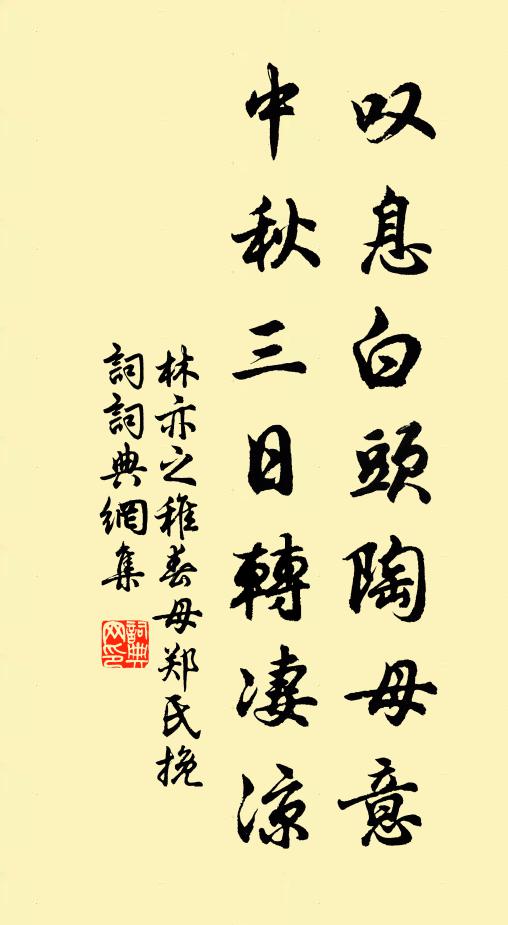 叹息白頭陶母意
中秋三日轉凄涼
林亦之稚春母郑氏挽
詞詞典網集
詞典网印